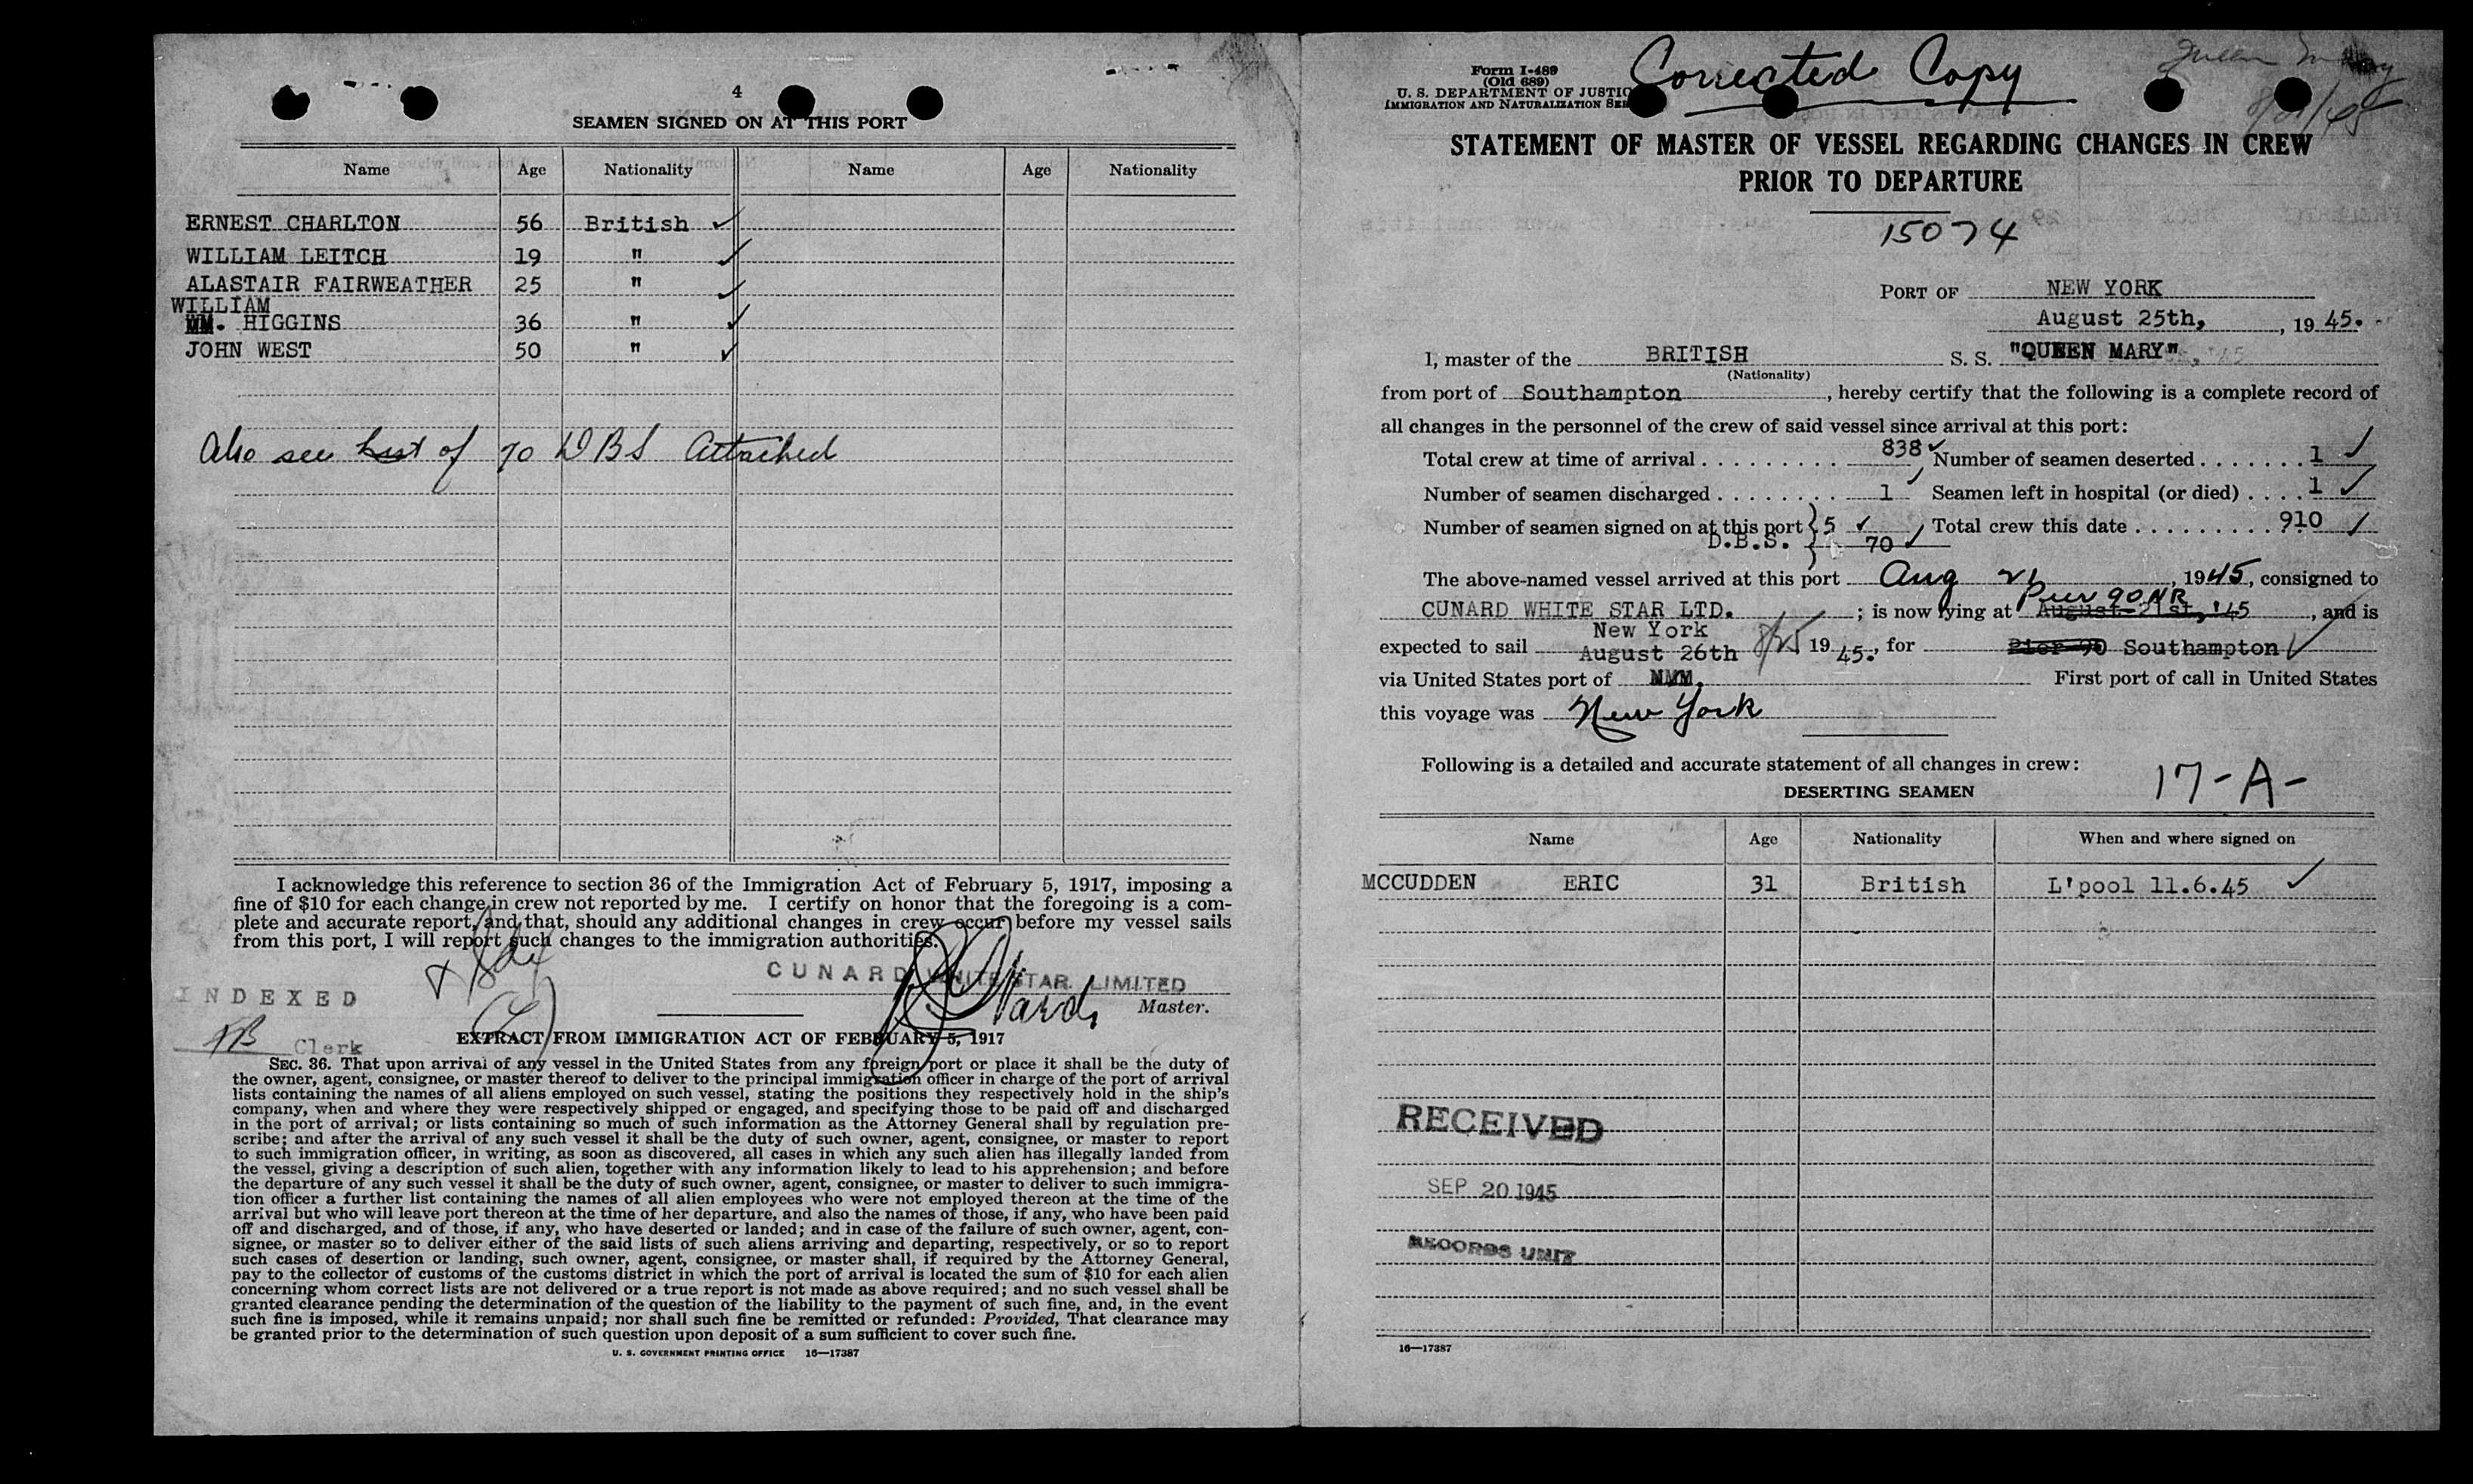 4
SEAMEN SIGNED ON AT THIS PORT
Name Age Nationality Name Age Nationality
ERNEST CHARLTON 56 British ✓
WILLIAM LEITCH 19 " ✓
ALASTAIR FAIRWEATHER 25 " ✓
WILLIAM
WM. HIGGINS 36 " ✓
JOHN WEST 50 " ✓
Also see list of 70 DBS Attached
I acknowledge this reference to section 36 of the Immigration Act of February 5, 1917, imposing a
fine of $10 for each change in crew not reported by me. I certify on honor that the foregoing is a com-
plete and accurate report, and that, should any additional changes in crew occur before my vessel sails
from this port, I will report such changes to the immigration authorities.
CUNARD WHITE STAR LIMITED
Master.
INDEXED
Clerk
EXTRACT FROM IMMIGRATION ACT OF FEBRUARY 5, 1917
SEC. 36. That upon arrival of any vessel in the United States from any foreign port or place it shall be the duty of
the owner, agent, consignee, or master thereof to deliver to the principal immigration officer in charge of the port of arrival
lists containing the names of all aliens employed on such vessel, stating the positions they respectively hold in the ship's
company, when and where they were respectively shipped or engaged, and specifying those to be paid off and discharged
in the port of arrival; or lists containing so much of such information as the Attorney General shall by regulation pre-
scribe; and after the arrival of any such vessel it shall be the duty of such owner, agent, consignee, or master to report
to such immigration officer, in writing, as soon as discovered, all cases in which any such alien has illegally landed from
the vessel, giving a description of such alien, together with any information likely to lead to his apprehension; and before
the departure of any such vessel it shall be the duty of such owner, agent, consignee, or master to deliver to such immigra-
tion officer a further list containing the names of all alien employees who were not employed thereon at the time of the
arrival but who will leave port thereon at the time of her departure, and also the names of those, if any, who have been paid
off and discharged, and of those, if any, who have deserted or landed; and in case of the failure of such owner, agent, con-
signee, or master so to deliver either of the said lists of such aliens arriving and departing, respectively, or so to report
such cases of desertion or landing, such owner, agent, consignee, or master shall, if required by the Attorney General,
pay to the collector of customs of the customs district in which the port of arrival is located the sum of $10 for each alien
concerning whom correct lists are not delivered or a true report is not made as above required; and no such vessel shall be
granted clearance pending the determination of the question of the liability to the payment of such fine, and, in the event
such fine is imposed, while it remains unpaid; nor shall such fine be remitted or refunded: Provided, That clearance may
be granted prior to the determination of such question upon deposit of a sum sufficient to cover such fine.
U. S. GOVERNMENT PRINTING OFFICE 16—17387
Form I-489
(Old 689)
U. S. DEPARTMENT OF JUSTIC
IMMIGRATION AND NATURALIZATION SER
Corrected Copy
STATEMENT OF MASTER OF VESSEL REGARDING CHANGES IN CREW
PRIOR TO DEPARTURE
15074
PORT OF NEW YORK
August 25th, , 19 45.
I, master of the BRITISH S. S. "QUEEN MARY"
(Nationality)
from port of Southampton , hereby certify that the following is a complete record of
all changes in the personnel of the crew of said vessel since arrival at this port:
Total crew at time of arrival . . . . . . . . . . 838 ✓ Number of seamen deserted . . . . . . . 1 ✓
Number of seamen discharged . . . . . . . . 1 ✓ Seamen left in hospital (or died) . . . . 1 ✓
Number of seamen signed on at this port { 5 ✓ Total crew this date . . . . . . . . . 910 ✓
D.B.S. 70 ✓
The above-named vessel arrived at this port Aug 21 , 1945, consigned to
Pier 90 NR
CUNARD WHITE STAR LTD. ; is now lying at August 21st, '45 , and is
New York
expected to sail August 26th 8/25 19 45., for Pier 90 Southampton ✓
via United States port of First port of call in United States
this voyage was New York
Following is a detailed and accurate statement of all changes in crew:
17-A-
DESERTING SEAMEN
Name Age Nationality When and where signed on
MCCUDDEN ERIC 31 British L'pool 11.6.45 ✓
RECEIVED
SEP 20 1945
RECORDS UNIT
16—17387